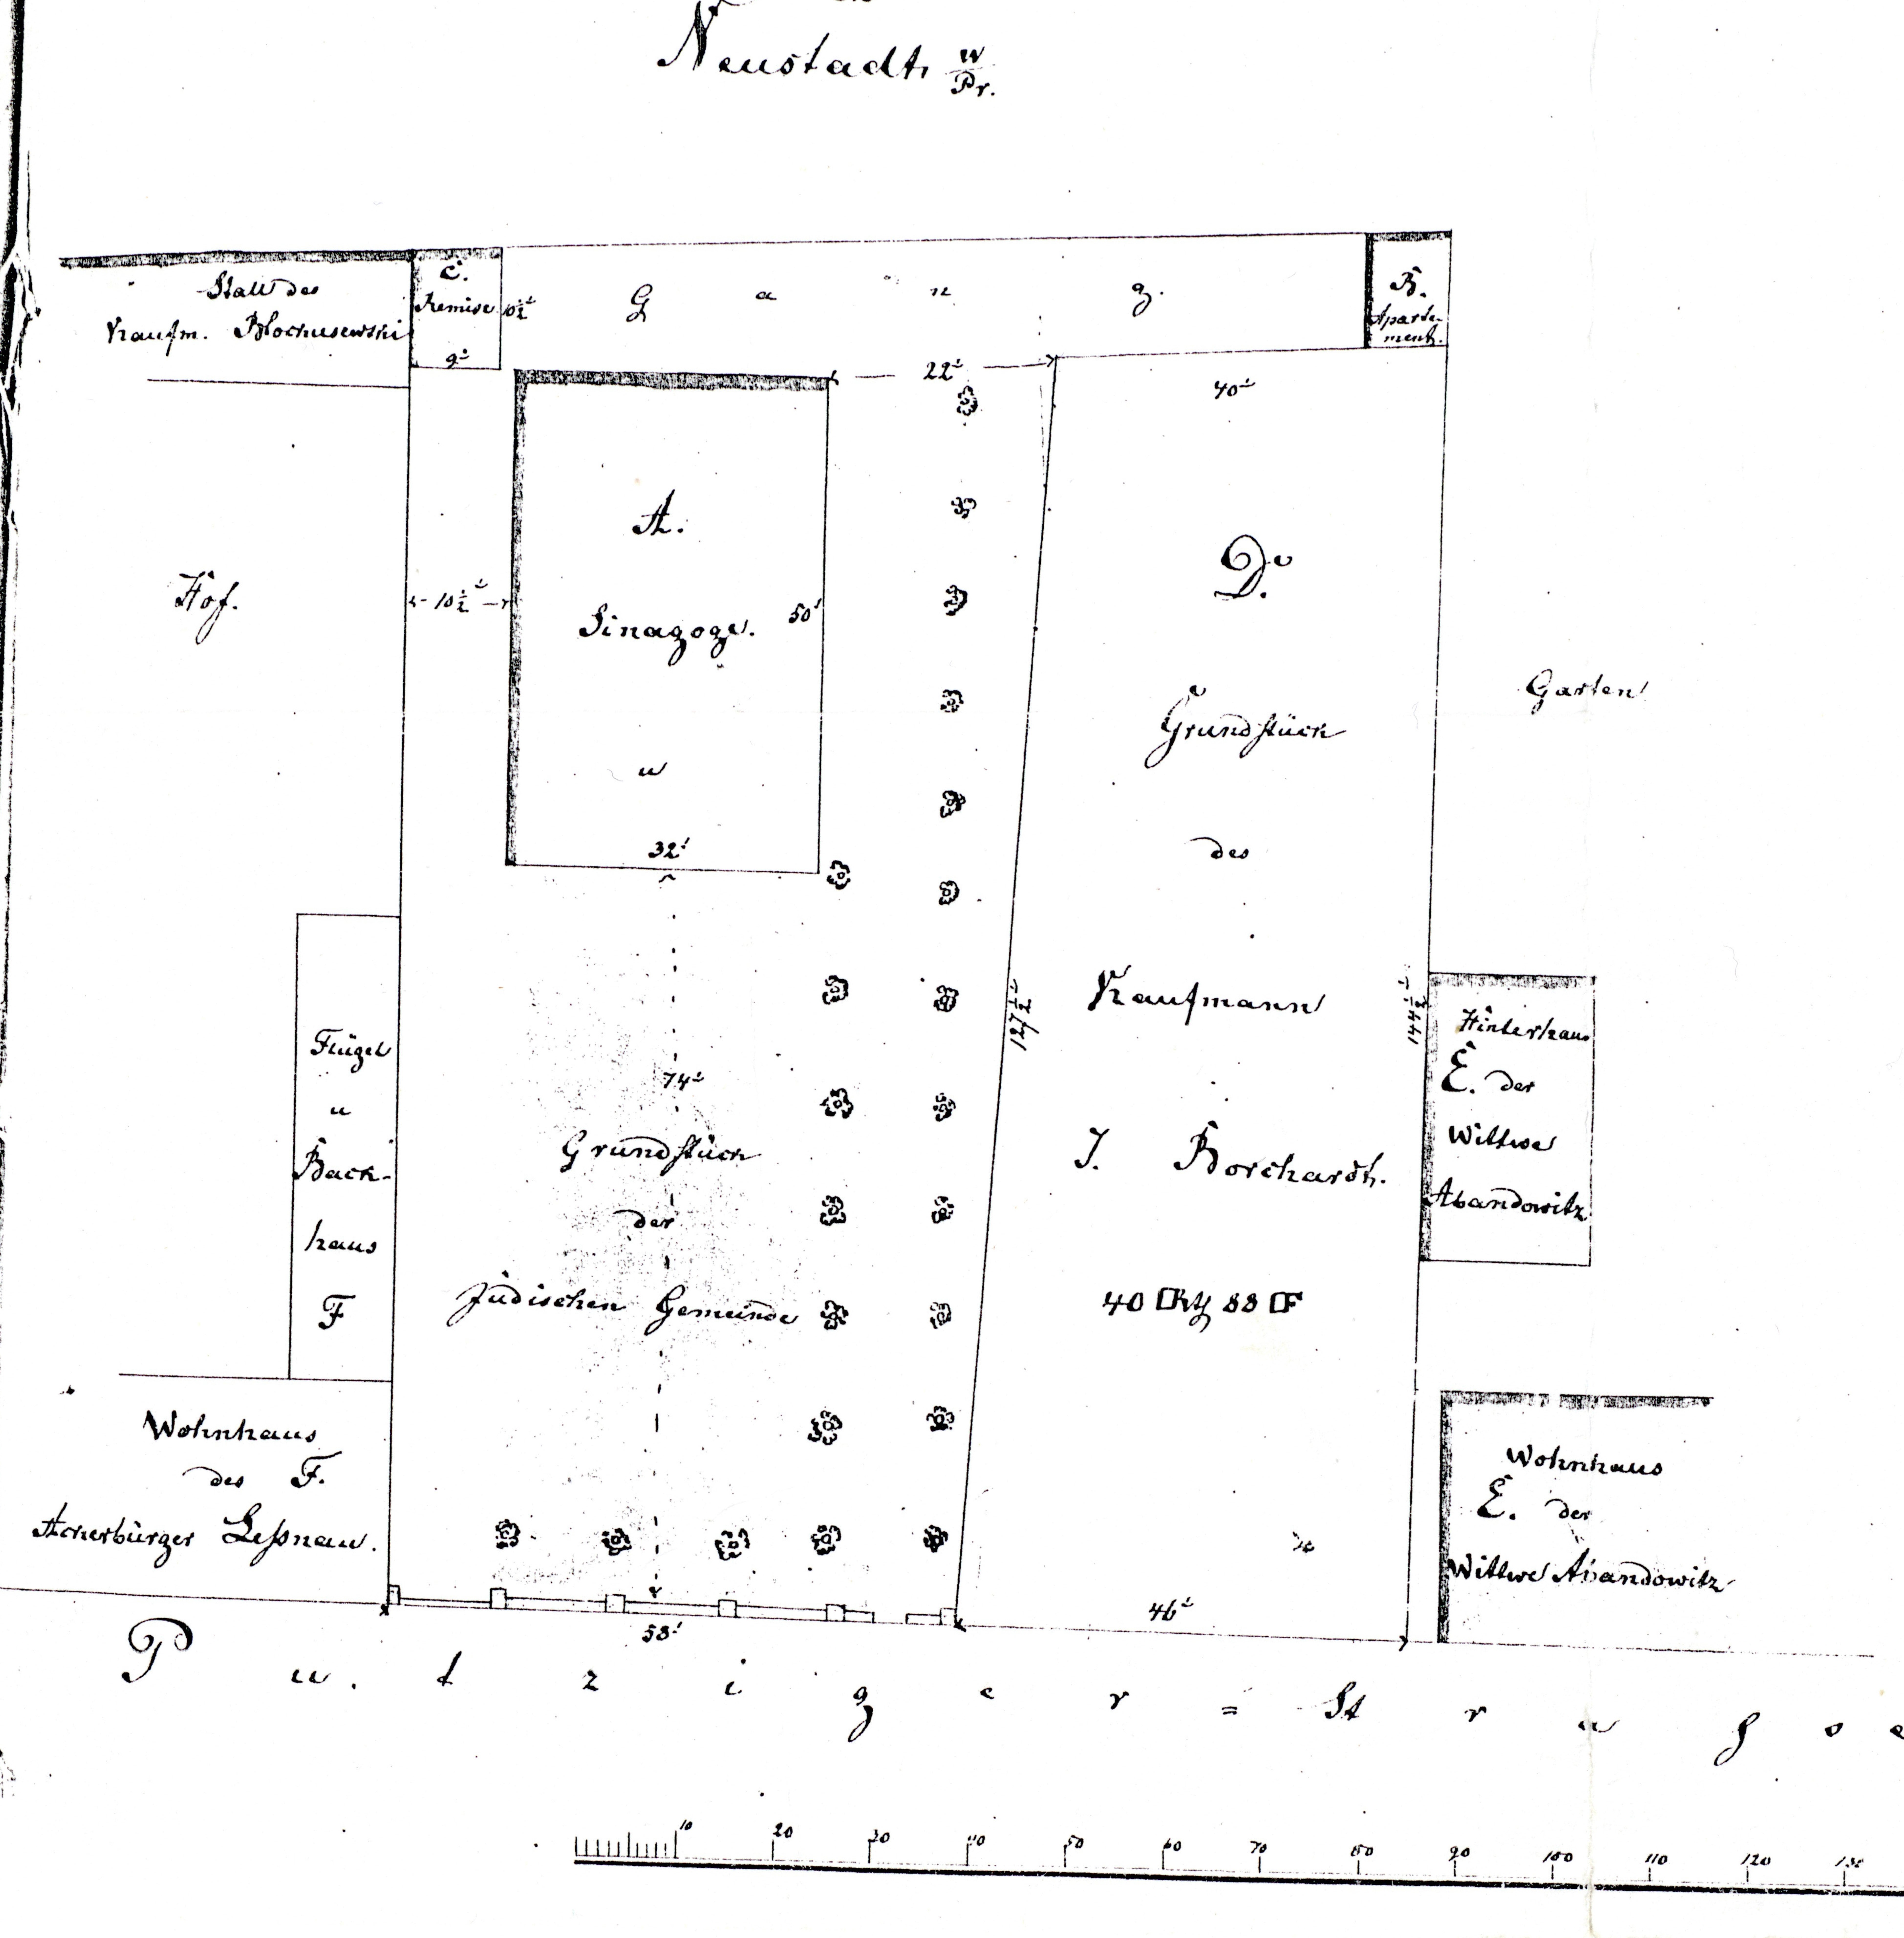 Neustadt, W
Pr.
Stall des
Kaufm.
C.
Remise
10½'
9'
G a n g.
B.
Aparte-
ment.
22'
40'
Hof.
10½'
A.
Sinagoge.
50'
u
32'
D.
Grundstück
des
Kaufmann
J. Borchardt.
40 □R 88 □F
Garten
127½'
144½'
Hinterhaus
E. der
Wittwe
Abandowitz
Flügel
u
Back-
haus
F
74'
Grundstück
der
Jüdischen Gemeinde
Wohnhaus
des F.
Ackerbürger Leßnau.
Wohnhaus
E. der
Wittwe Abandowitz
58'
46'
P u. t z i g e r = St r a ſ s e
10 20 30 40 50 60 70 80 90 100 110 120 130